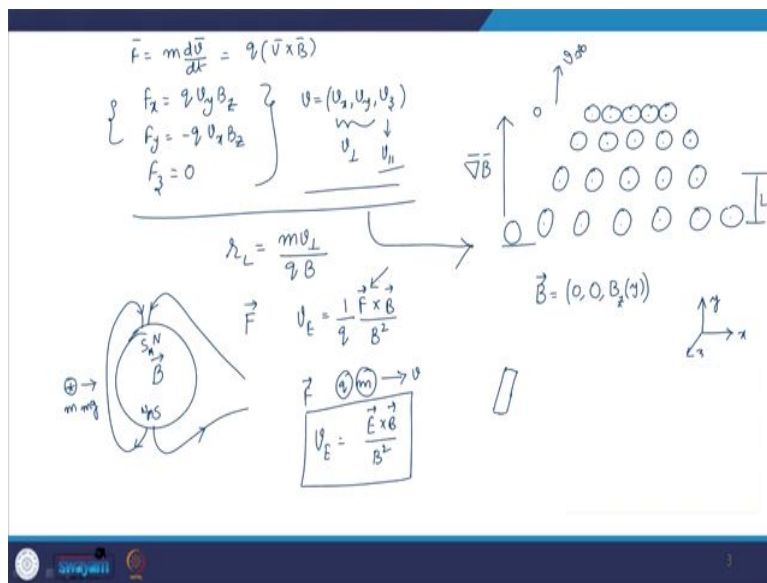 F̄ = m dv̄/dt = q (v̄ × B̄)
{ Fx = q vy Bz }
Fy = -q vx Bz
F3 = 0
v = (vx, vy, v3)
v⊥ v||
rL = m v⊥ / q B
F⃗ vE = 1/q F⃗ × B⃗ / B²
F⃗ q m → v
vE = E⃗ × B⃗ / B²
N
B⃗
S
+ →
m mg
∇B̄
L
B⃗ = (0, 0, Bz(y))
y
x
z
swayam
3